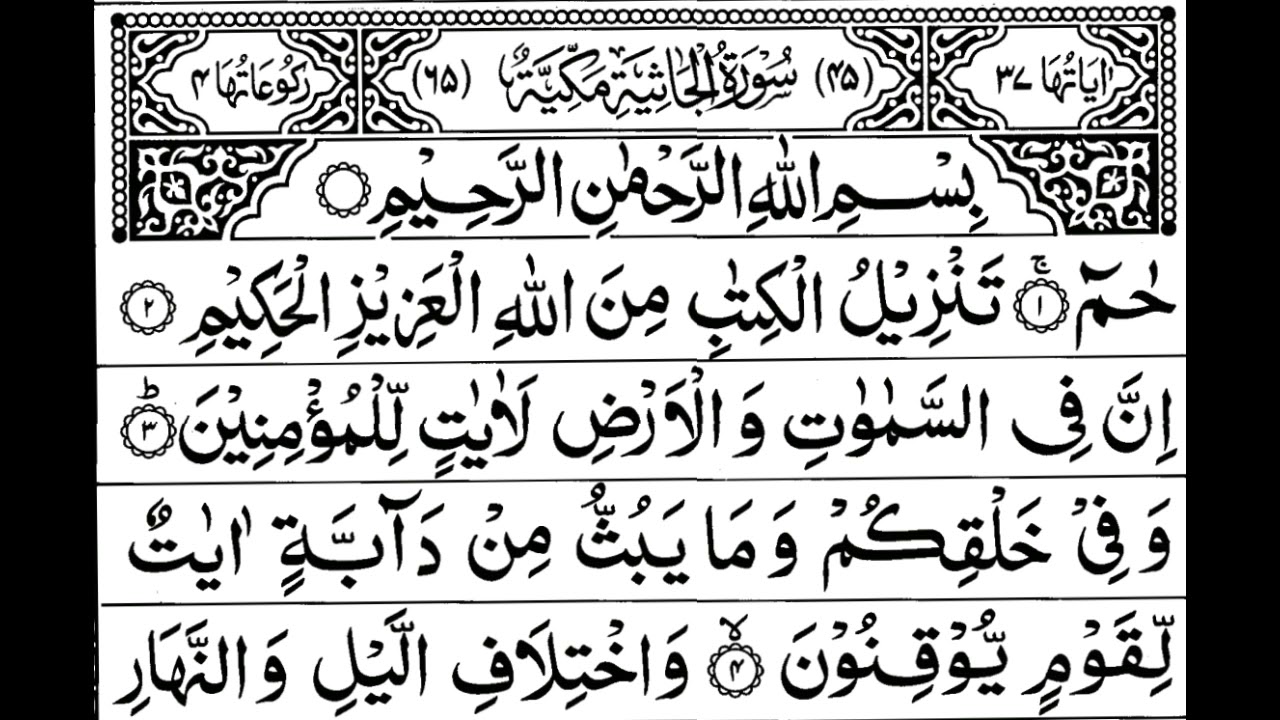 اٰیَاتُهَا ۳۷ (۴۵) سُوْرَةُ الْجَاثِيَةِ مَكِّيَّةٌ (۶۵) رُكُوْعَاتُهَا ۴
بِسْمِ اللّٰهِ الرَّحْمٰنِ الرَّحِيْمِ
حٰمٓ ۚ‏﴿۱﴾ تَنْزِيْلُ الْكِتٰبِ مِنَ اللّٰهِ الْعَزِيْزِ الْحَكِيْمِ ﴿۲﴾
اِنَّ فِى السَّمٰوٰتِ وَ الْاَرْضِ لَاٰيٰتٍ لِّلْمُؤْمِنِيْنَ ؕ‏﴿۳﴾
وَ فِىْ خَلْقِكُمْ وَ مَا يَبُثُّ مِنْ دَآبَّةٍ اٰيٰتٌ
لِّقَوْمٍ يُّوْقِنُوْنَ ۙ‏﴿۴﴾ وَ اخْتِلَافِ الَّيْلِ وَ النَّهَارِ